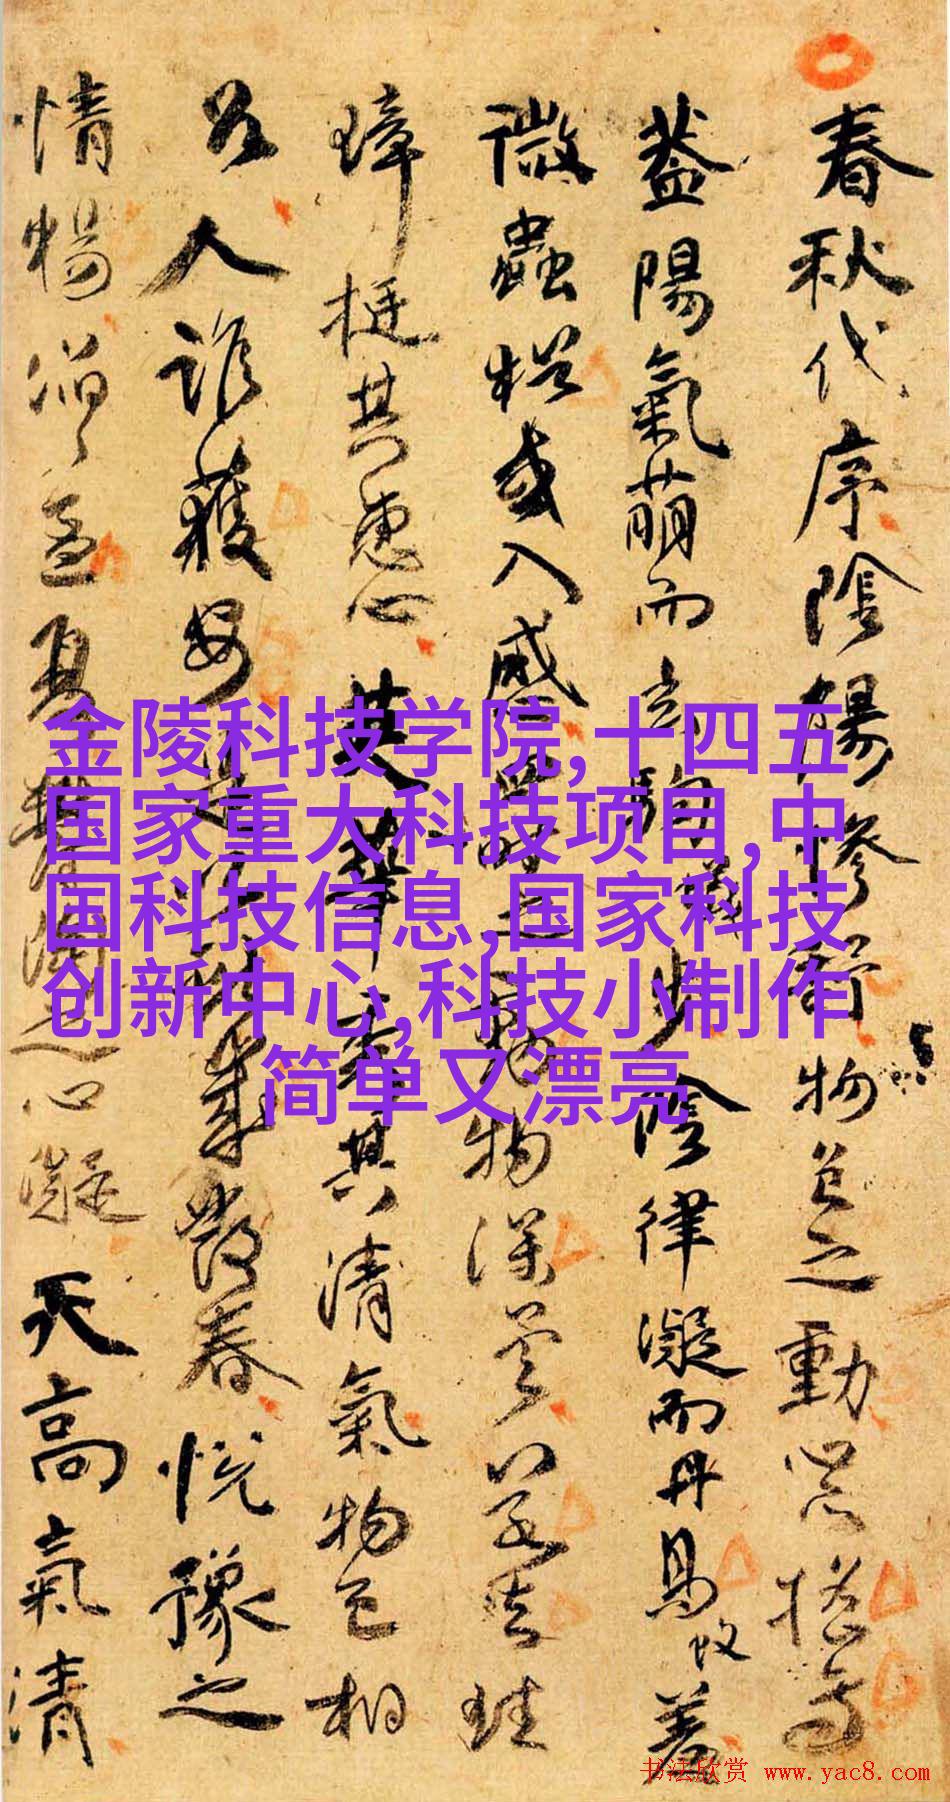 春秋代序陰陽慘舒物色之動心亦搖焉
蓋陽氣萌而玄駒步陰律凝而丹鳥羞
微蟲猶或入感四時之動物深矣若夫珪
璋挺其惠心英華秀其清氣物色相
召人誰獲安是以獻歲發春悅豫之
情暢滔滔孟夏鬱陶之心凝天高氣清
金陵科技学院,十四五
国家重大科技项目,中
国科技信息,国家科技
创新中心,科技小制作
简单又漂亮
书法欣赏 www.yac8.com